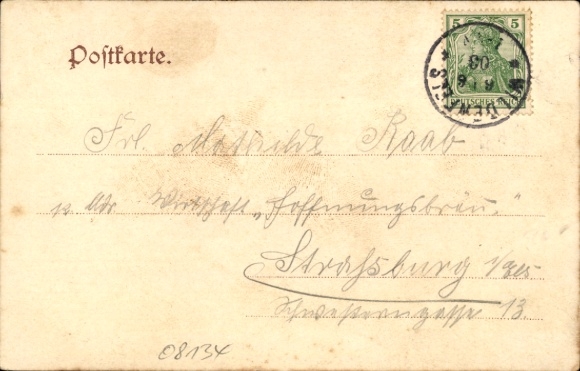 Postkarte.
5 5
DEUTSCHES REICH
Frl. Mathilde Raab
Wirtschaft „Hoffnungsbräu."
Strassburg i/Els
Schwesterngasse 13.
08134